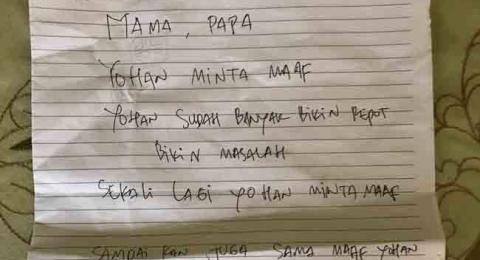 MAMA, PAPA
YOHAN MINTA MAAF
YOHAN SUDAH BANYAK BIKIN REPOT
BIKIN MASALAH
SEKALI LAGI YOHAN MINTA MAAF
SAMPAI KAN JUGA SAMA MAAF YOHAN